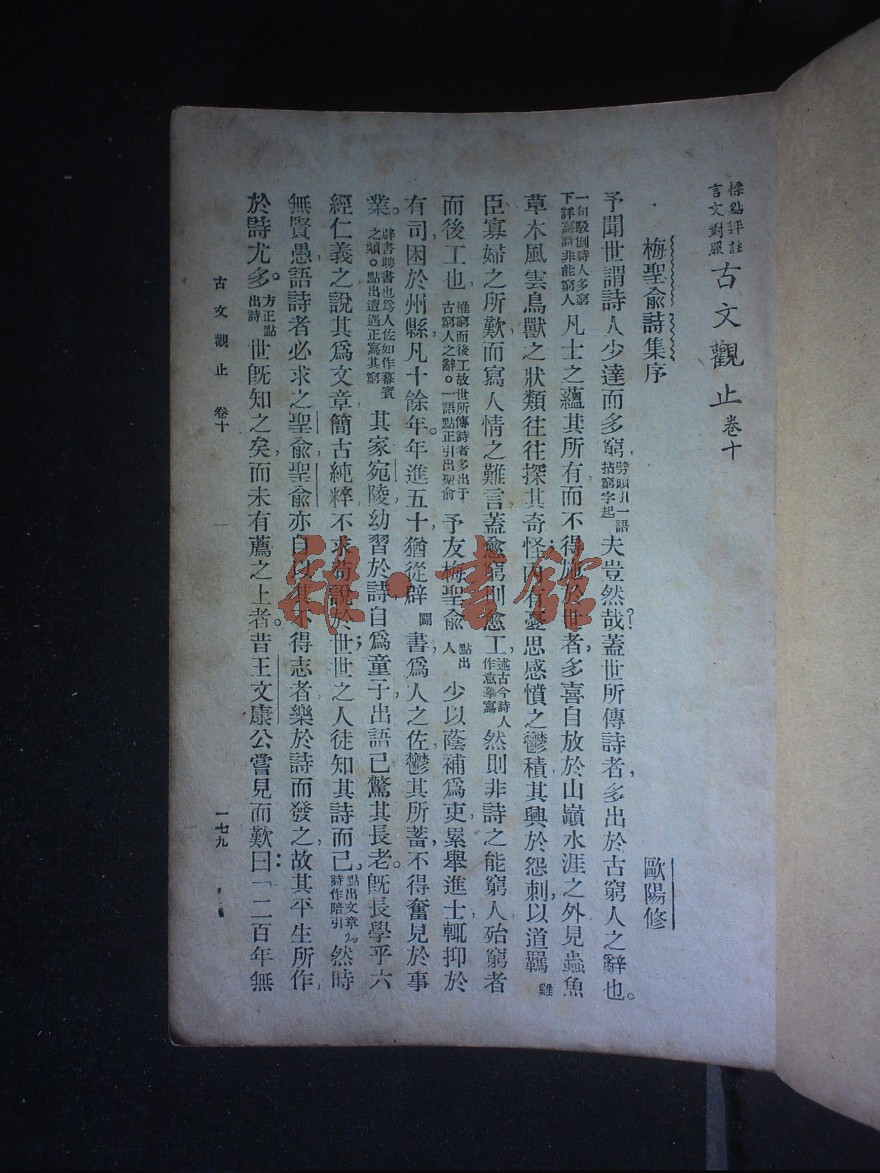 標點評註
言文對照
古文觀止 卷十
梅聖俞詩集序
歐陽修
予聞世謂詩人少達而多窮，劈頭引一語拈窮字起夫豈然哉？蓋世所傳詩者，多出於古窮人之辭也。
一句駁倒詩人多窮下詳寫詩非能窮人凡士之蘊其所有而不得施於世者，多喜自放於山巔水涯之外見蟲魚
草木風雲鳥獸之狀類往往探其奇怪；內有憂思感憤之鬱積，其興於怨刺，以道羈雞
臣寡婦之所歎而寫人情之難言，蓋愈窮則愈工，述古今詩人作意摹寫然則非詩之能窮人，殆窮者
而後工也，惟窮而後工故世所傳詩者多出于古窮人之辭。一語點正引出聖俞予友梅聖俞，點出人少以蔭補爲吏，累舉進士，輒抑於
有司，困於州縣，凡十餘年。年進五十，猶從辟闢書，爲人之佐，鬱其所蓄，不得奮見於事
業。辟書聘書也爲人佐如作幕賓之類。點出遭遇正寫其窮其家宛陵，幼習於詩，自爲童子，出語已驚其長老。旣長，學乎六
經仁義之說，其爲文章，簡古純粹，不求苟說於世；世之人徒知其詩而已。點出文章詩作陪引然時
無賢愚，語詩者必求之聖俞；聖俞亦自以其不得志者，樂於詩而發之，故其平生所作，
於詩尤多。方正點出詩世旣知之矣，而未有薦之上者。昔王文康公嘗見而歎曰：「二百年無
古文觀止 卷十
一七九
雜·書館